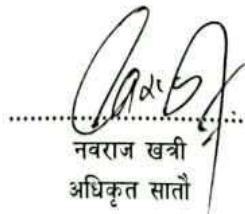 नवराज खत्री
अधिकृत सातौ